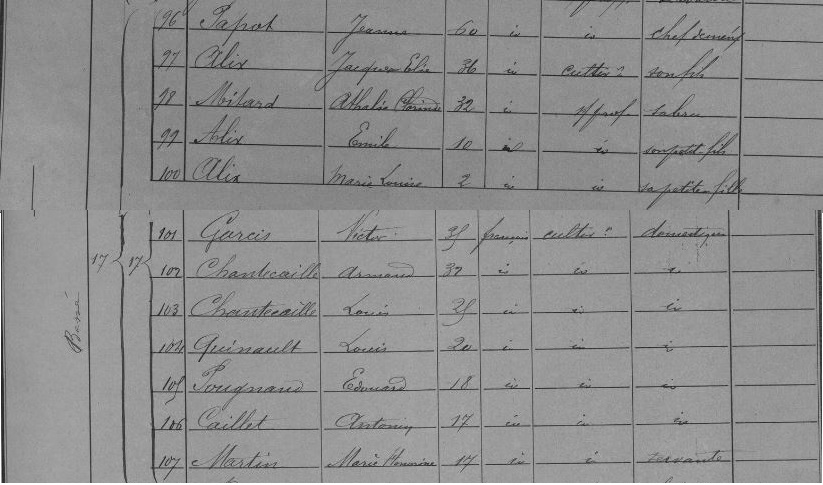 96 Papot Jeanne 60 id id chef de ménage
97 Alix Jacques Elie 36 id cultivr son fils
98 Métard Athalie Clorinde 32 id s/prof sa bru
99 Alix Emile 10 id id son petit-fils
100 Alix Marie Louise 2 id id sa petite-fille
101 Garcis Victor 35 français cultivr domestique
17 17 102 Chantecaille Armand 32 id id id
103 Chantecaille Louis 25 id id id
104 Quinault Louis 20 id id id
105 Pougnaud Edouard 18 id id id
106 Caillet Antonin 17 id id id
107 Martin Marie Honorine 17 id id servante